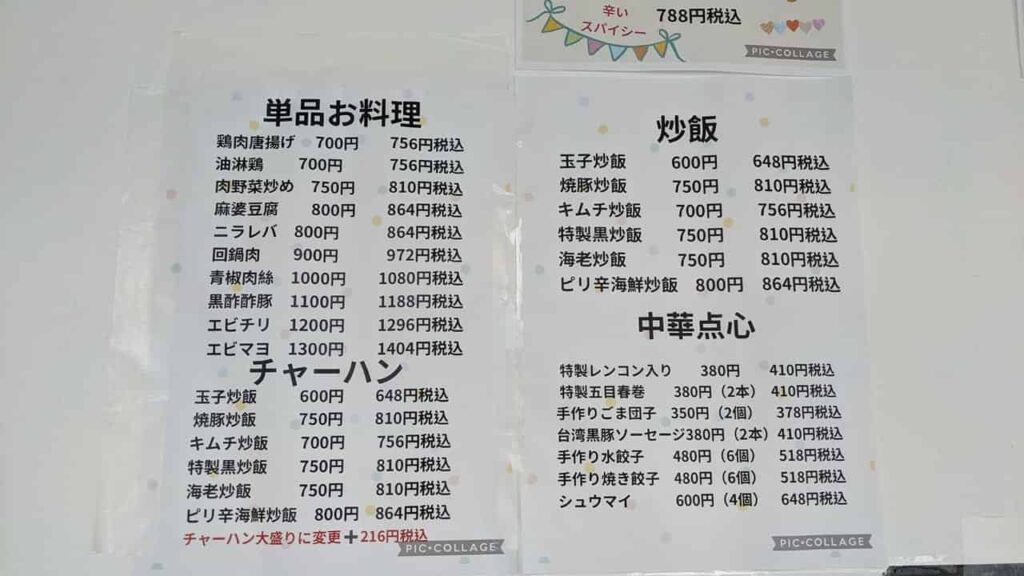 辛い
スパイシー 788円税込
PIC•COLLAGE
単品お料理
鶏肉唐揚げ 700円 756円税込
油淋鶏 700円 756円税込
肉野菜炒め 750円 810円税込
麻婆豆腐 800円 864円税込
ニラレバ 800円 864円税込
回鍋肉 900円 972円税込
青椒肉絲 1000円 1080円税込
黒酢酢豚 1100円 1188円税込
エビチリ 1200円 1296円税込
エビマヨ 1300円 1404円税込
チャーハン
玉子炒飯 600円 648円税込
焼豚炒飯 750円 810円税込
キムチ炒飯 700円 756円税込
特製黒炒飯 750円 810円税込
海老炒飯 750円 810円税込
ピリ辛海鮮炒飯 800円 864円税込
チャーハン大盛りに変更+216円税込
PIC•COLLAGE
炒飯
玉子炒飯 600円 648円税込
焼豚炒飯 750円 810円税込
キムチ炒飯 700円 756円税込
特製黒炒飯 750円 810円税込
海老炒飯 750円 810円税込
ピリ辛海鮮炒飯 800円 864円税込
中華点心
特製レンコン入り 380円 410円税込
特製五目春巻 380円（2本）410円税込
手作りごま団子 350円（2個） 378円税込
台湾黒豚ソーセージ380円（2本）410円税込
手作り水餃子 480円（6個） 518円税込
手作り焼き餃子 480円（6個） 518円税込
シュウマイ 600円（4個） 648円税込
PIC•COLLAGE